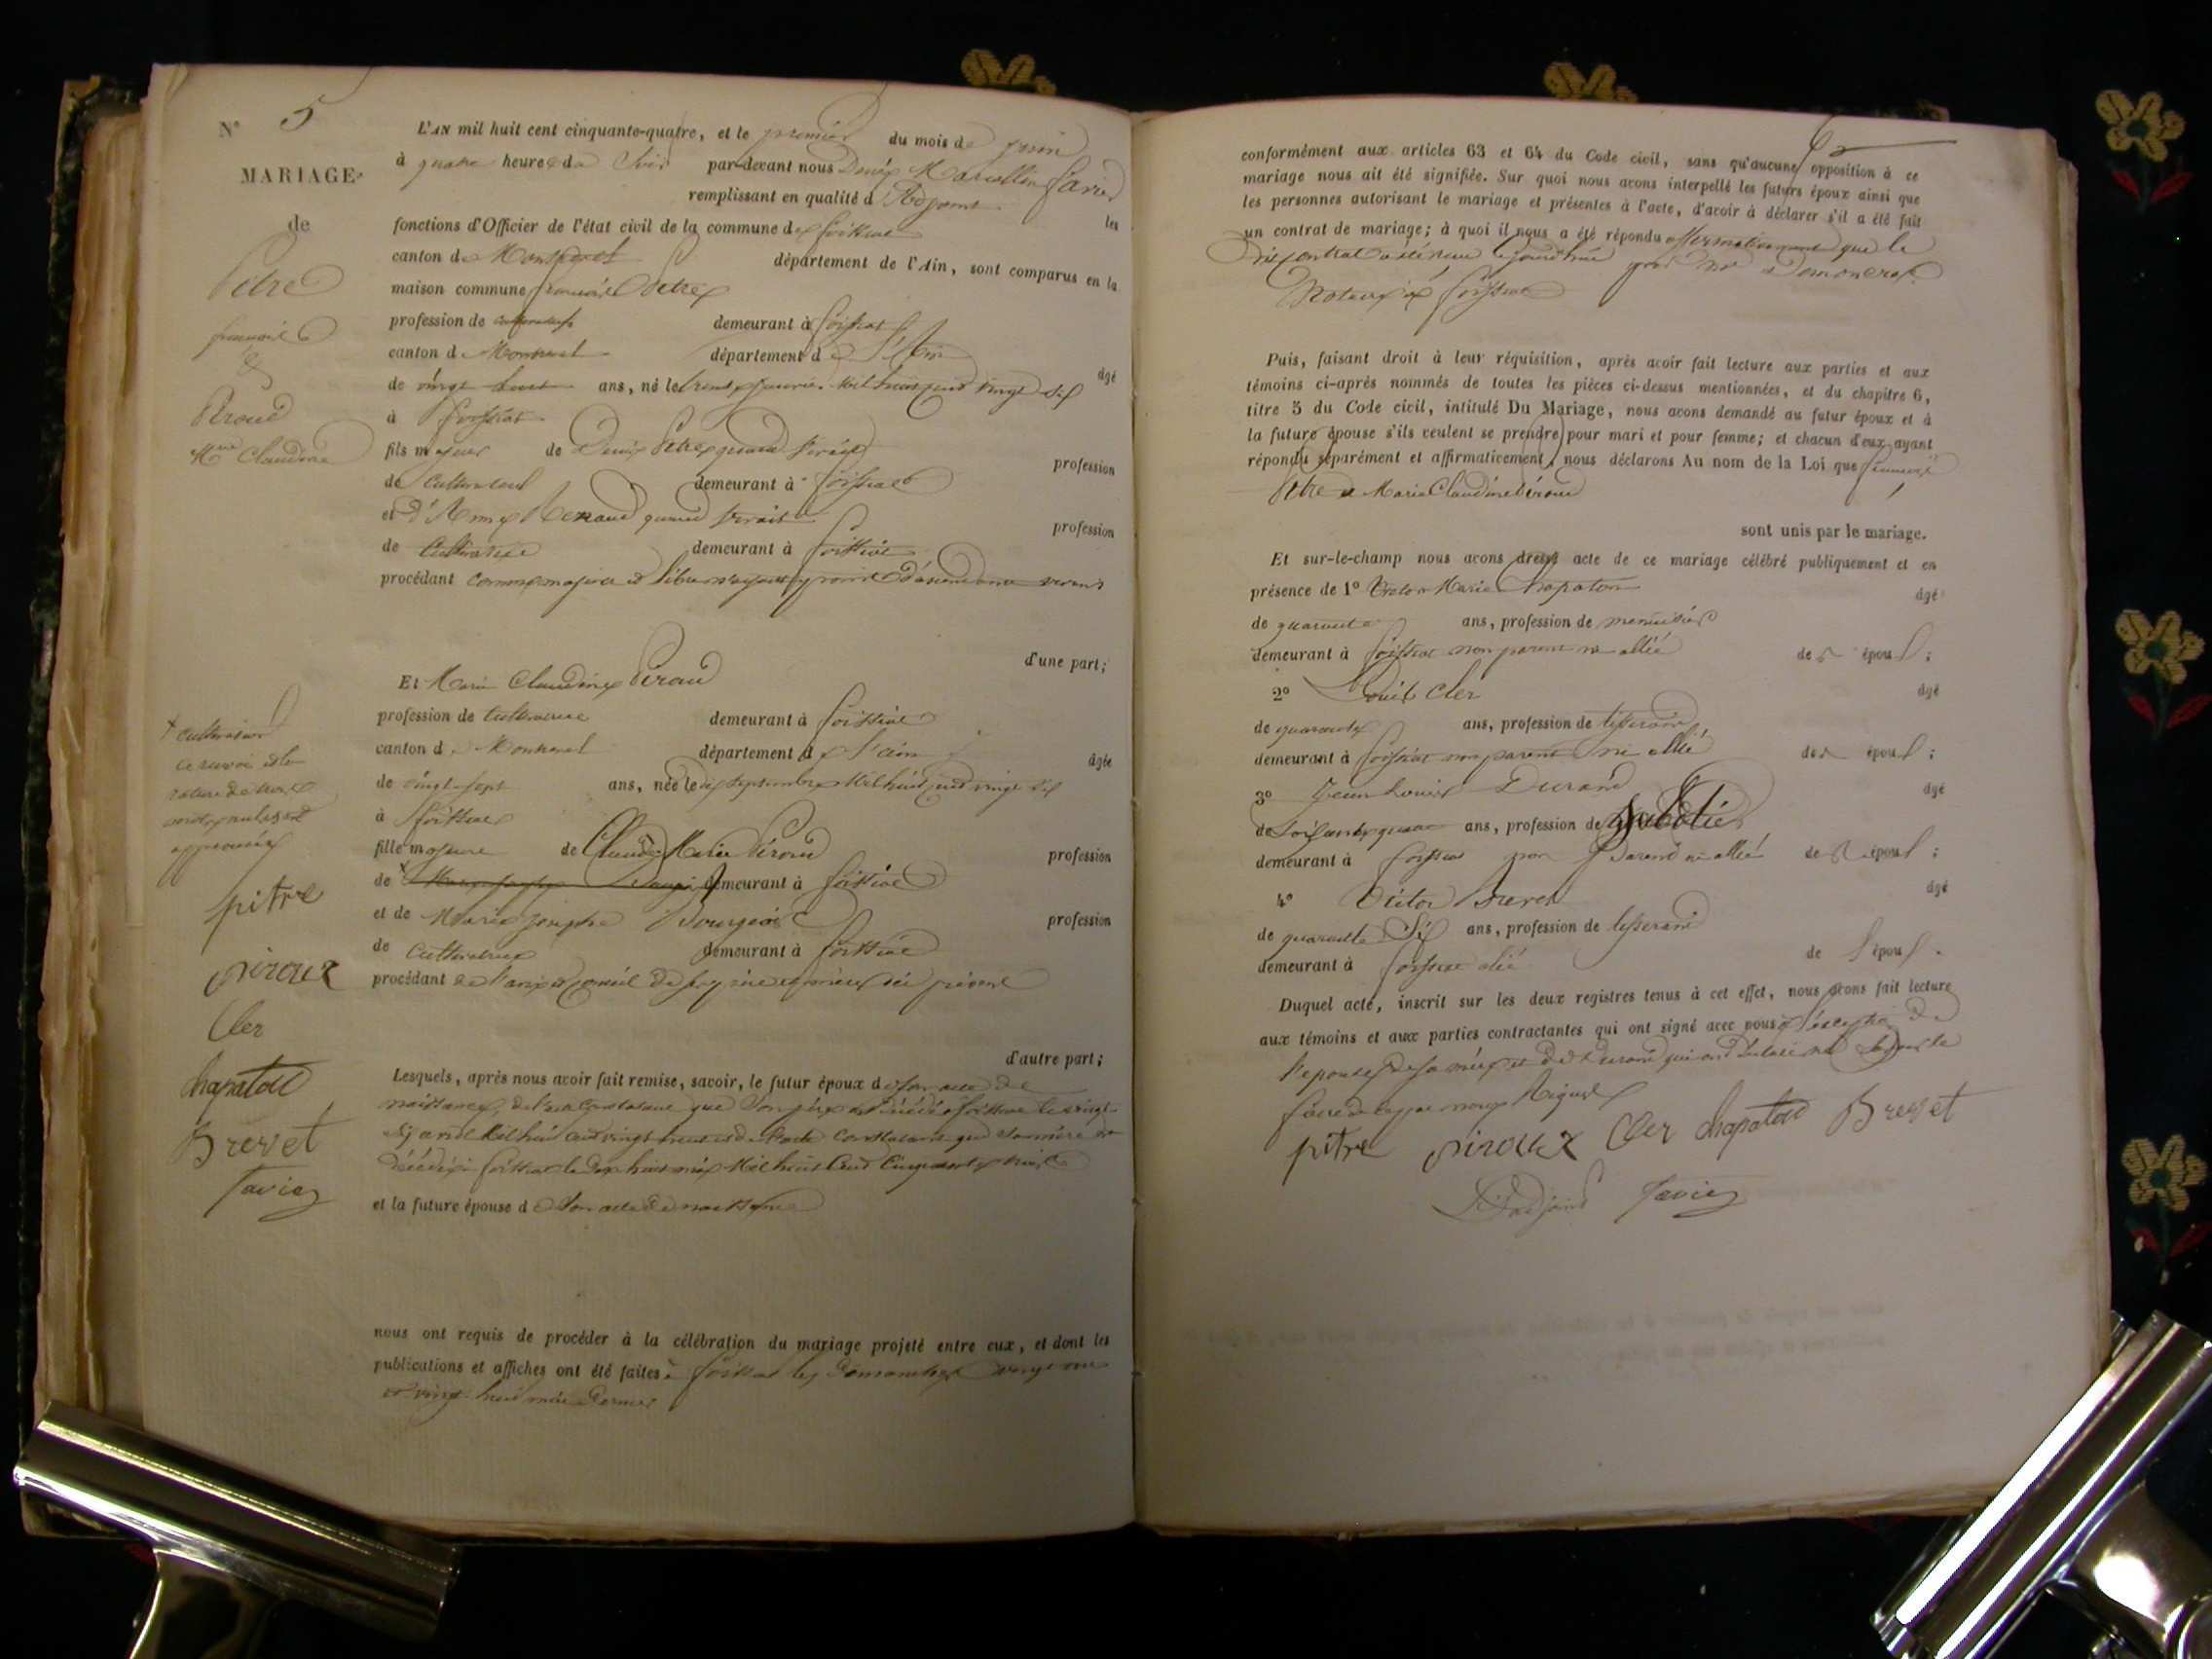 N° 5
MARIAGE
de
Pitre
françois
&
Piroud
Mie Claudine
L'AN mil huit cent cinquante-quatre, et le premier du mois de juin
à quatre heures du soir par-devant nous Denis Marcellin Favier
remplissant en qualité d'Adjoint les
fonctions d'Officier de l'état civil de la commune de foissiat
canton de Montrevel département de l'Ain, sont comparus en la
maison commune françois Pitre
profession de cultivateur demeurant à foissiat
canton de Montrevel département de l'Ain âgé
de vingt huit ans, né le trente janvier mil huit cent vingt six
à foissiat
fils majeur de Denis Pitre quand vivait profession
de cultivateur demeurant à foissiat
et d' Renaud quand vivait profession
de cultivatrice demeurant à foissiat
procédant comme majeur et libre n'ayant point d'ascendans vivans
d'une part;
Et Marie Claudine Piroud
profession de cultivatrice demeurant à foissiat
canton de Montrevel département de l'ain âgée
de vingt-sept ans, née le septembre mil huit cent vingt six
à foissiat
fille majeure de Claude Marie Piroud profession
de demeurant à foissiat
et de Marie Josephe Bourgeois profession
de cultivatrice demeurant à foissiat
procédant de l'avis et conseil de ses père et mère ici présent
d'autre part;
+ cultivateur
ce renvoi et la
rature de trois
mots nuls sont
approuvés
pitre
piroux
Cler
chapatou
Brevet
favier
Lesquels, après nous avoir fait remise, savoir, le futur époux de son acte de
naissance, de l'acte constatant que son père est décédé à foissiat le vingt
six avril mil huit cent vingt de l'acte constatant que sa mère est
décédée à foissiat le dix huit mai mil huit cent cinquante
et la future épouse de son acte de naissance
nous ont requis de procéder à la célébration du mariage projeté entre eux, et dont les
publications et affiches ont été faites à foissiat les dimanches vingt un
et vingt huit mai dernier
conformément aux articles 63 et 64 du Code civil, sans qu'aucune opposition à ce
mariage nous ait été signifiée. Sur quoi nous avons interpellé les futurs époux ainsi que
les personnes autorisant le mariage et présentes à l'acte, d'avoir à déclarer s'il a été fait
un contrat de mariage; à quoi il nous a été répondu affirmativement que le
dit contrat a été reçu aujourd'hui par
Notaire à foissiat
Puis, faisant droit à leur réquisition, après avoir fait lecture aux parties et aux
témoins ci-après nommés de toutes les pièces ci-dessus mentionnées, et du chapitre 6,
titre 5 du Code civil, intitulé Du Mariage, nous avons demandé au futur époux et à
la future épouse s'ils veulent se prendre pour mari et pour femme; et chacun d'eux ayant
répondu séparément et affirmativement, nous déclarons Au nom de la Loi que françois
Pitre et Marie Claudine Piroud
sont unis par le mariage.
Et sur-le-champ nous avons dressé acte de ce mariage célébré publiquement et en
présence de 1° Victor Marie Chapaton âgé
de quarante ans, profession de menuisier
demeurant à foissiat non parent ni allié des époux;
2° Louis Cler âgé
de quarante ans, profession de tisserand
demeurant à foissiat non parent ni allié des époux;
3° Jean Louis Durand âgé
de soixante quatre ans, profession de sabotier
demeurant à foissiat non parent ni allié des époux;
4° Victor Brevet âgé
de quarante six ans, profession de tisserand
demeurant à foissiat allié de l'époux.
Duquel acte, inscrit sur les deux registres tenus à cet effet, nous avons fait lecture
aux témoins et aux parties contractantes qui ont signé avec nous à l'exception de
l'épouse, de sa mère et de Durand qui ont déclaré ne savoir le
faire de ce par nous requis
pitre piroux Cler chapatou Brevet
L'adjoint favier